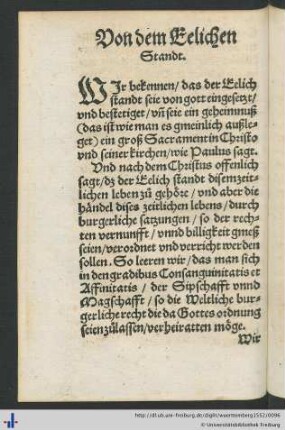 Von dem Eelichen
Standt.
WIr bekennen / das der Eelich
standt seie von gott eingesetzt /
vnd bestetiget / vñ seie ein geheimnuß
(das ist wie man es gmeinlich außle-
get) ein groß Sacrament in Christo
vnd seiner kirchen / wie Paulus sagt.
Vnd nach dem Christus offenlich
sagt / dz der Eelich standt disem zeit-
lichen leben zů gehört / vnd aber die
händel dises zeitlichen lebens / durch
burgerliche satzungen / so der rech-
ten vernunfft / vnnd billigkeit gmeß
seien / verordnet vnd verricht werden
sollen. So leeren wir / das man sich
in den gradibus Consanguinitatis et
Affinitatis / der Sipschafft vnnd
Magschafft / so die Weltliche bur-
gerliche recht die da Gottes ordnung
seien zůlassen / verheiratten möge.
Wir
http://dl.ub.uni-freiburg.de/diglit/wuerttemberg1552/0096
© Universitätsbibliothek Freiburg